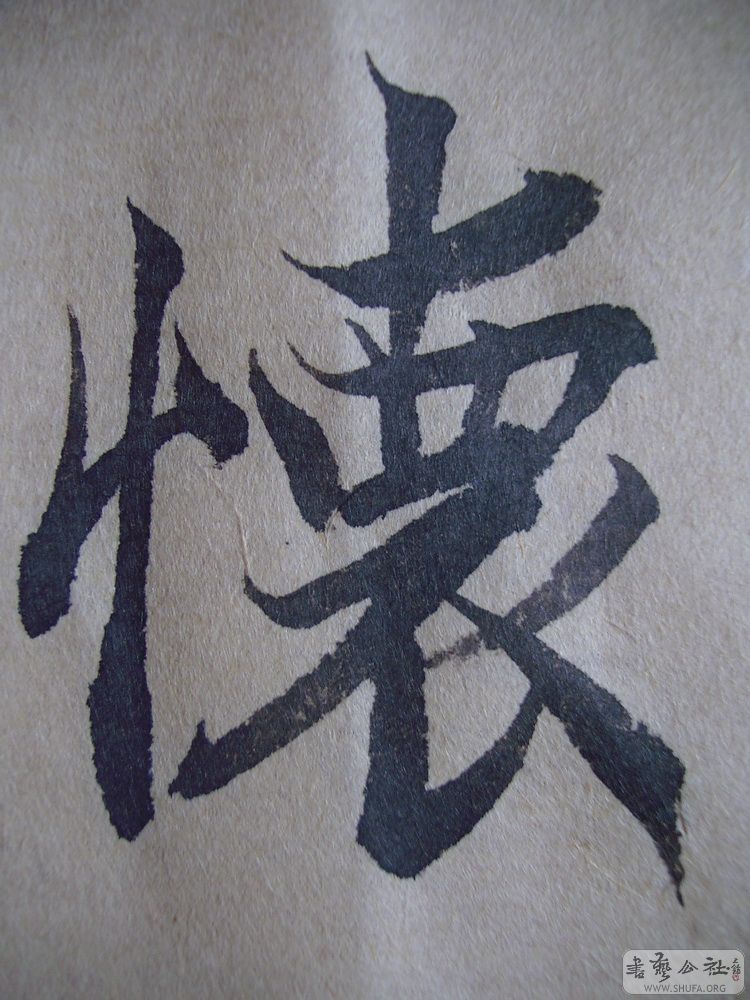 懐
書藝公社
WWW.SHUFA.ORG